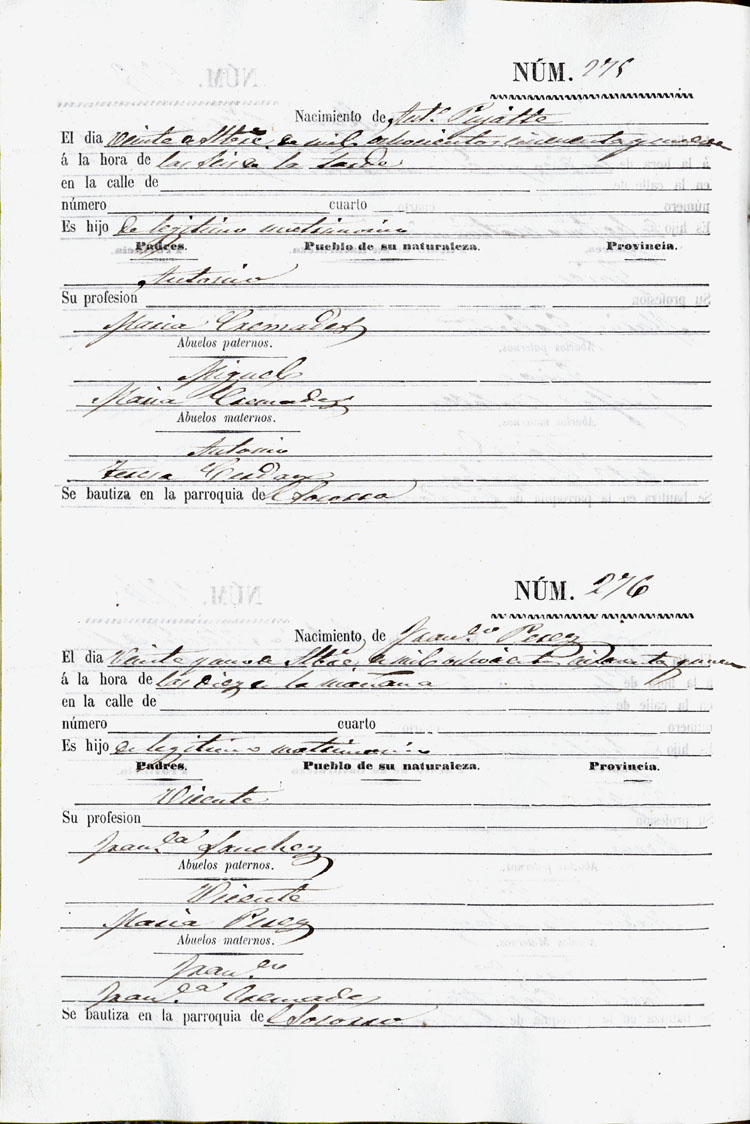 NÚM. 275
Nacimiento de Ant.º Pujalte
El dia veinte de 9bre. de mil ochocientos cincuenta y nueve
á la hora de las seis de la tarde
en la calle de
número cuarto
Es hijo de legitimo matrimonio
Padres. Pueblo de su naturaleza. Provincia.
Antonio
Su profesion
Maria Cremades
Abuelos paternos.
Miguel
Maria Cremades
Abuelos maternos.
Antonio
Teresa Cerdan
Se bautiza en la parroquia de Socorro
NÚM. 276
Nacimiento de Fran.co Perez
El dia Veinte y uno de 9bre. de mil ochocientos cincuenta y nueve
á la hora de las diez de la mañana
en la calle de
número cuarto
Es hijo de legitimo matrimonio
Padres. Pueblo de su naturaleza. Provincia.
Vicente
Su profesion
Fran.ca Sanchez
Abuelos paternos.
Vicente
Maria Perez
Abuelos maternos.
Fran.co
Fran.ca Cremades
Se bautiza en la parroquia de Socorro